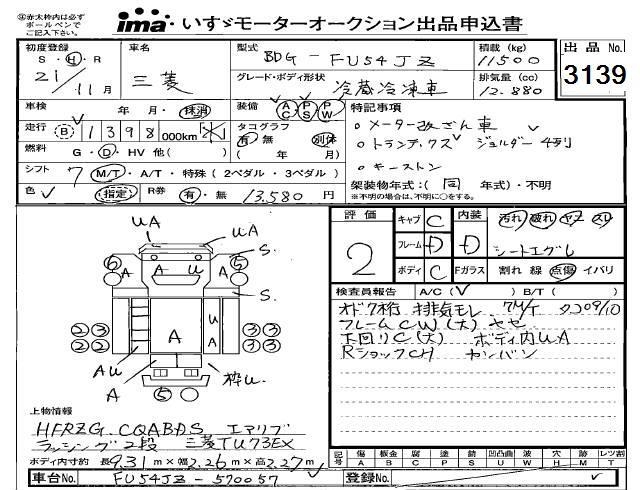 ㊟赤太枠内は必ず
ボールペンで
ご記入下さい。
ima いすゞモーターオークション出品申込書
初度登録 S・H・R 21/11月
車名 三菱
型式 BDG-FU54JZ
積載(kg) 11500
出品No. 3139
グレード・ボディ形状 冷蔵冷凍車
排気量(cc) 12.880
車検 年・月・抹消
装備 AC PS PW
特記事項
走行 B 1398 000km
タコグラフ 有 無 別体 (年 月)
・メーター改ざん車
・トランテックス ショルダー4列
・キーストン
燃料 G・D・HV 他( )
シフト 7 M/T・A/T・特殊(2ペダル・3ペダル)
色 (指定) R券 有・無 13,580円
架装物年式:(同 年式)・不明
※不明の場合は、不明に○をする。
評価 2
キャブ C 内装 汚れ 破れ ヤブ スリ
フレーム D D シートエグレ
ボディ C Fガラス 割れ 線 点傷 イバリ
検査員報告 A/C( ) B/T( )
オドク桁 排気モレ 7M/T タコ09/10
フレームCW(大) ヤセ
下回りC(大) ボディ内UA
RショックCH カンバン
UA
UA
S.
A U
6 A A 5
S.
2 2 A U A 3 3
2 2 3 3
AU 枠U
5
上物情報
HFRZG CQABDS エアリブ
ラッシング2段 三菱TU73EX
ボディ内寸約 長9.31m×幅2.26m×高2.27m
記号 傷A 板金B 腐C 塗P 錆S 凹凸曲U 波W 穴H 跡M レツ割T
車台No. FU54JZ-570057
登録No.